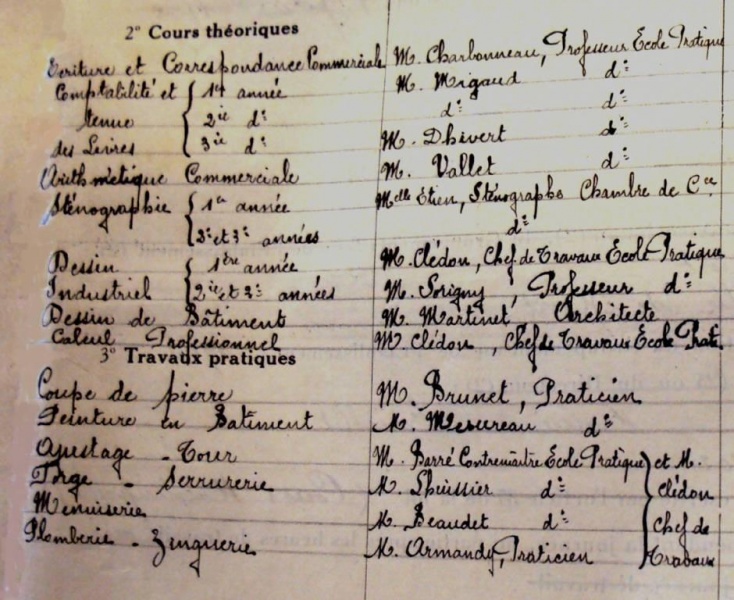 2º Cours théoriques
Ecriture et Correspondance Commerciale M. Charbonneau, Professeur Ecole Pratique
Comptabilité et { 1re année M. Migaud dº
tenue 2ie dº dº dº
des Livres 3ie dº M. Dhivert dº
Arithmétique Commerciale M. Vallet dº
Sténographie { 1re année Melle Etien, Sténographe Chambre de Cce
2e et 3e années dº
Dessin { 1ère année M. Clédon, Chef de Travaux Ecole Pratique
Industriel 2ie et 3e années M. Sorigny, Professeur dº
Dessin de Bâtiment M. Martinet, Architecte
Calcul Professionnel M. Clédon, Chef de Travaux Ecole Prat.
3º Travaux pratiques
Coupe de pierre M. Brunet, Praticien
Peinture en Batiment M. dº
Ajustage - Tour M. Barré Contremaître Ecole Pratique } et M.
Forge - Serrurerie M. Lhuissier dº Clédon
Menuiserie M. Beaudet dº Chef de
Plomberie - Zinguerie M. Armandy, Praticien Travaux